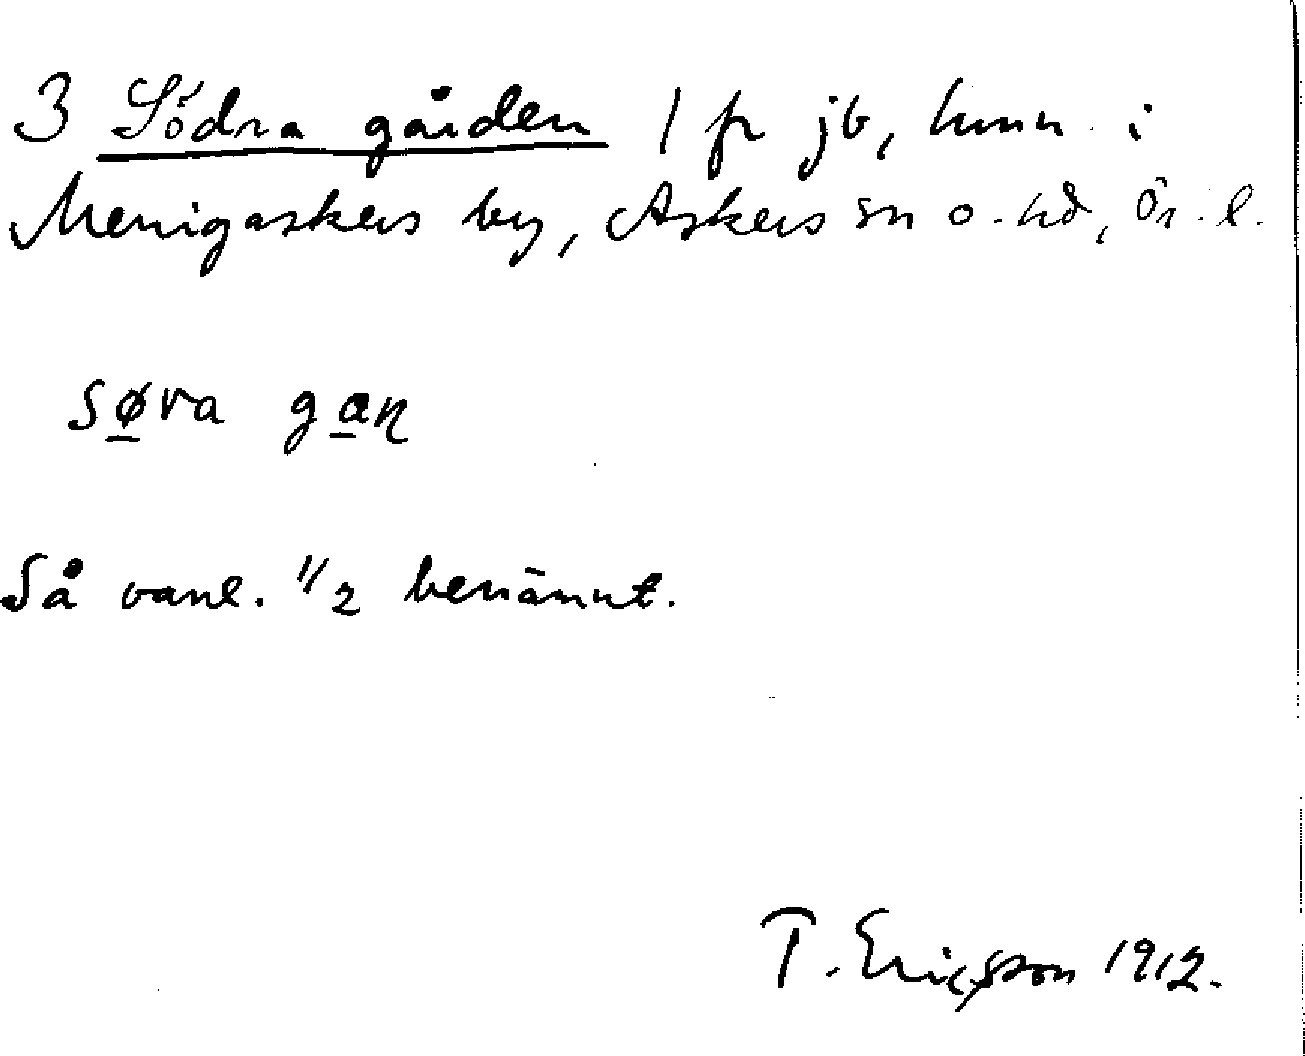 3 Södra gården 1 fr jb, hmn i
Menigaskers by, Askers sn o. hd, Ör. l.
søra gaɳ
Så vanl. 1/2 benämnt.
T. Ericsson 1912.